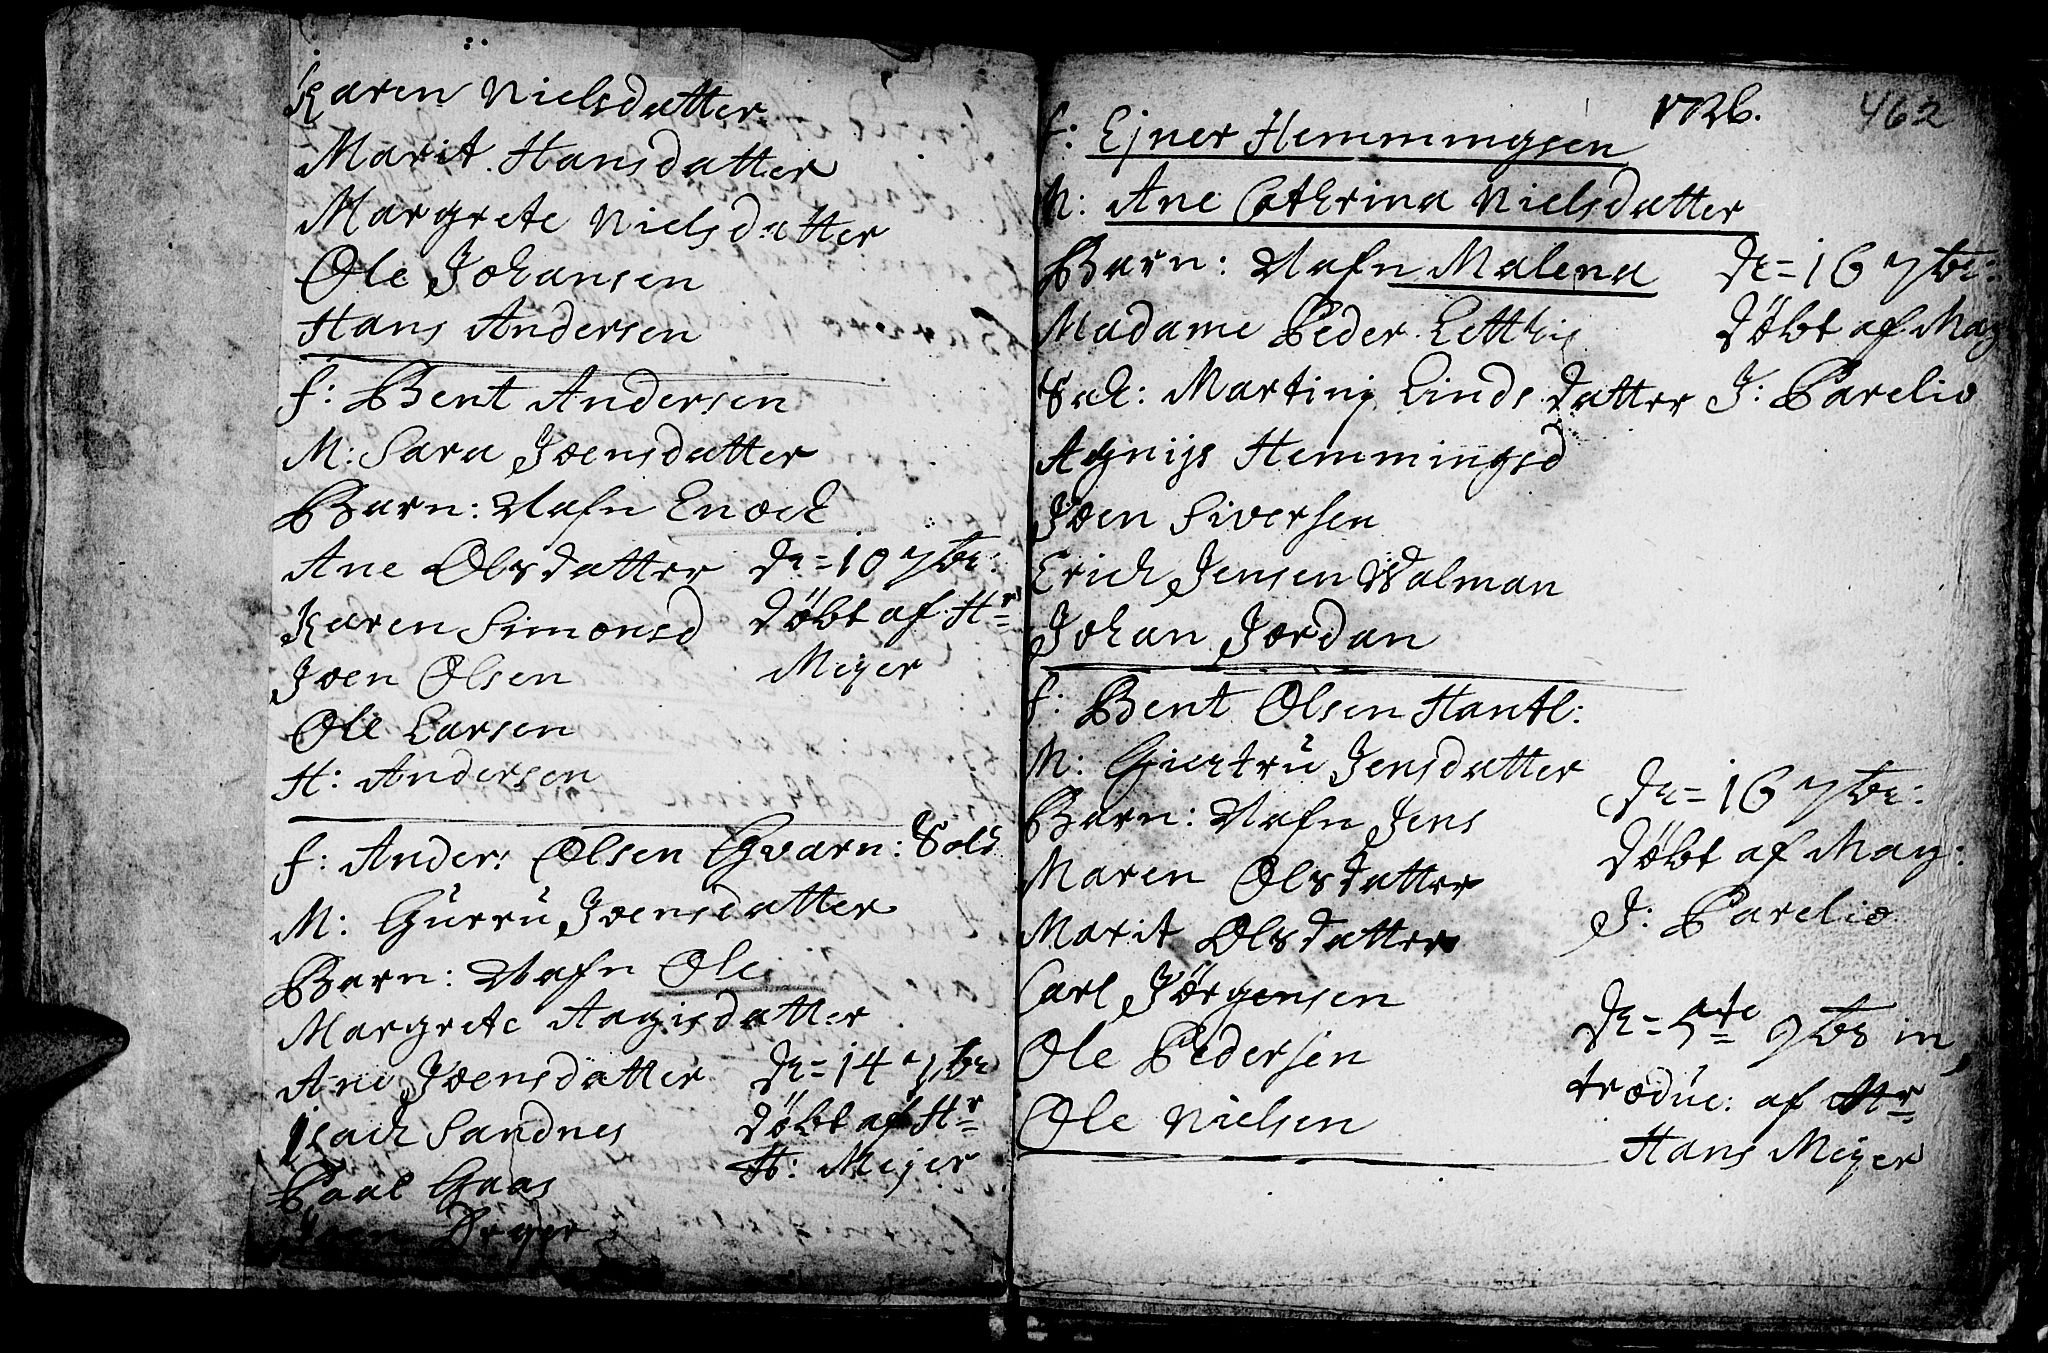 Karen Nielsdatter
Marit Hansdatter
Margrete Nielsdatter
Ole Johansen
Hans Andersen
f: Bent Andersen
M: Sara Joensdatter
Barn: Nafn Enock
Ane Olsdatter
Karen Simonsd
Joen Olsen
Ole Larsen
H: Andersen
D. = 10 7br:
døbt af Hr
Meyer
f: Ander: Olsen Qvarn: Sold
M: Gurru Joensdatter
Barn: Nafn Ole
Margrete Aagisdatter
Ane Joensdatter
Isach Sandnes
Paal Gaas
Joen
D. = 14 7br
døbt af Hr
H: Mejer
1726. 462
f: Ejner Hemmingsen
M: Ane Cathrina Nielsdatter
Barn: Nafn Malena
Madame Peder
Sal: Martinj Linds datter
Agnijs Hemmingsd
Joen Siversen
Erich Jensen Walman
Johan Jordan
D. = 16 7br:
døbt af Mag
J: Parelio
f: Bent Olsen Hantl:
M: Giertru Jensdatter
Barn: Nafn Jens
Maren Olsdatter
Marit Olsdatter
Carl Jørgensen
Ole Pedersen
Ole Nielsen
D. = 16 7br:
døbt af Mag:
J: Parelio
D. = 5te 9br in,
troduc: af Hr
Hans Meyer